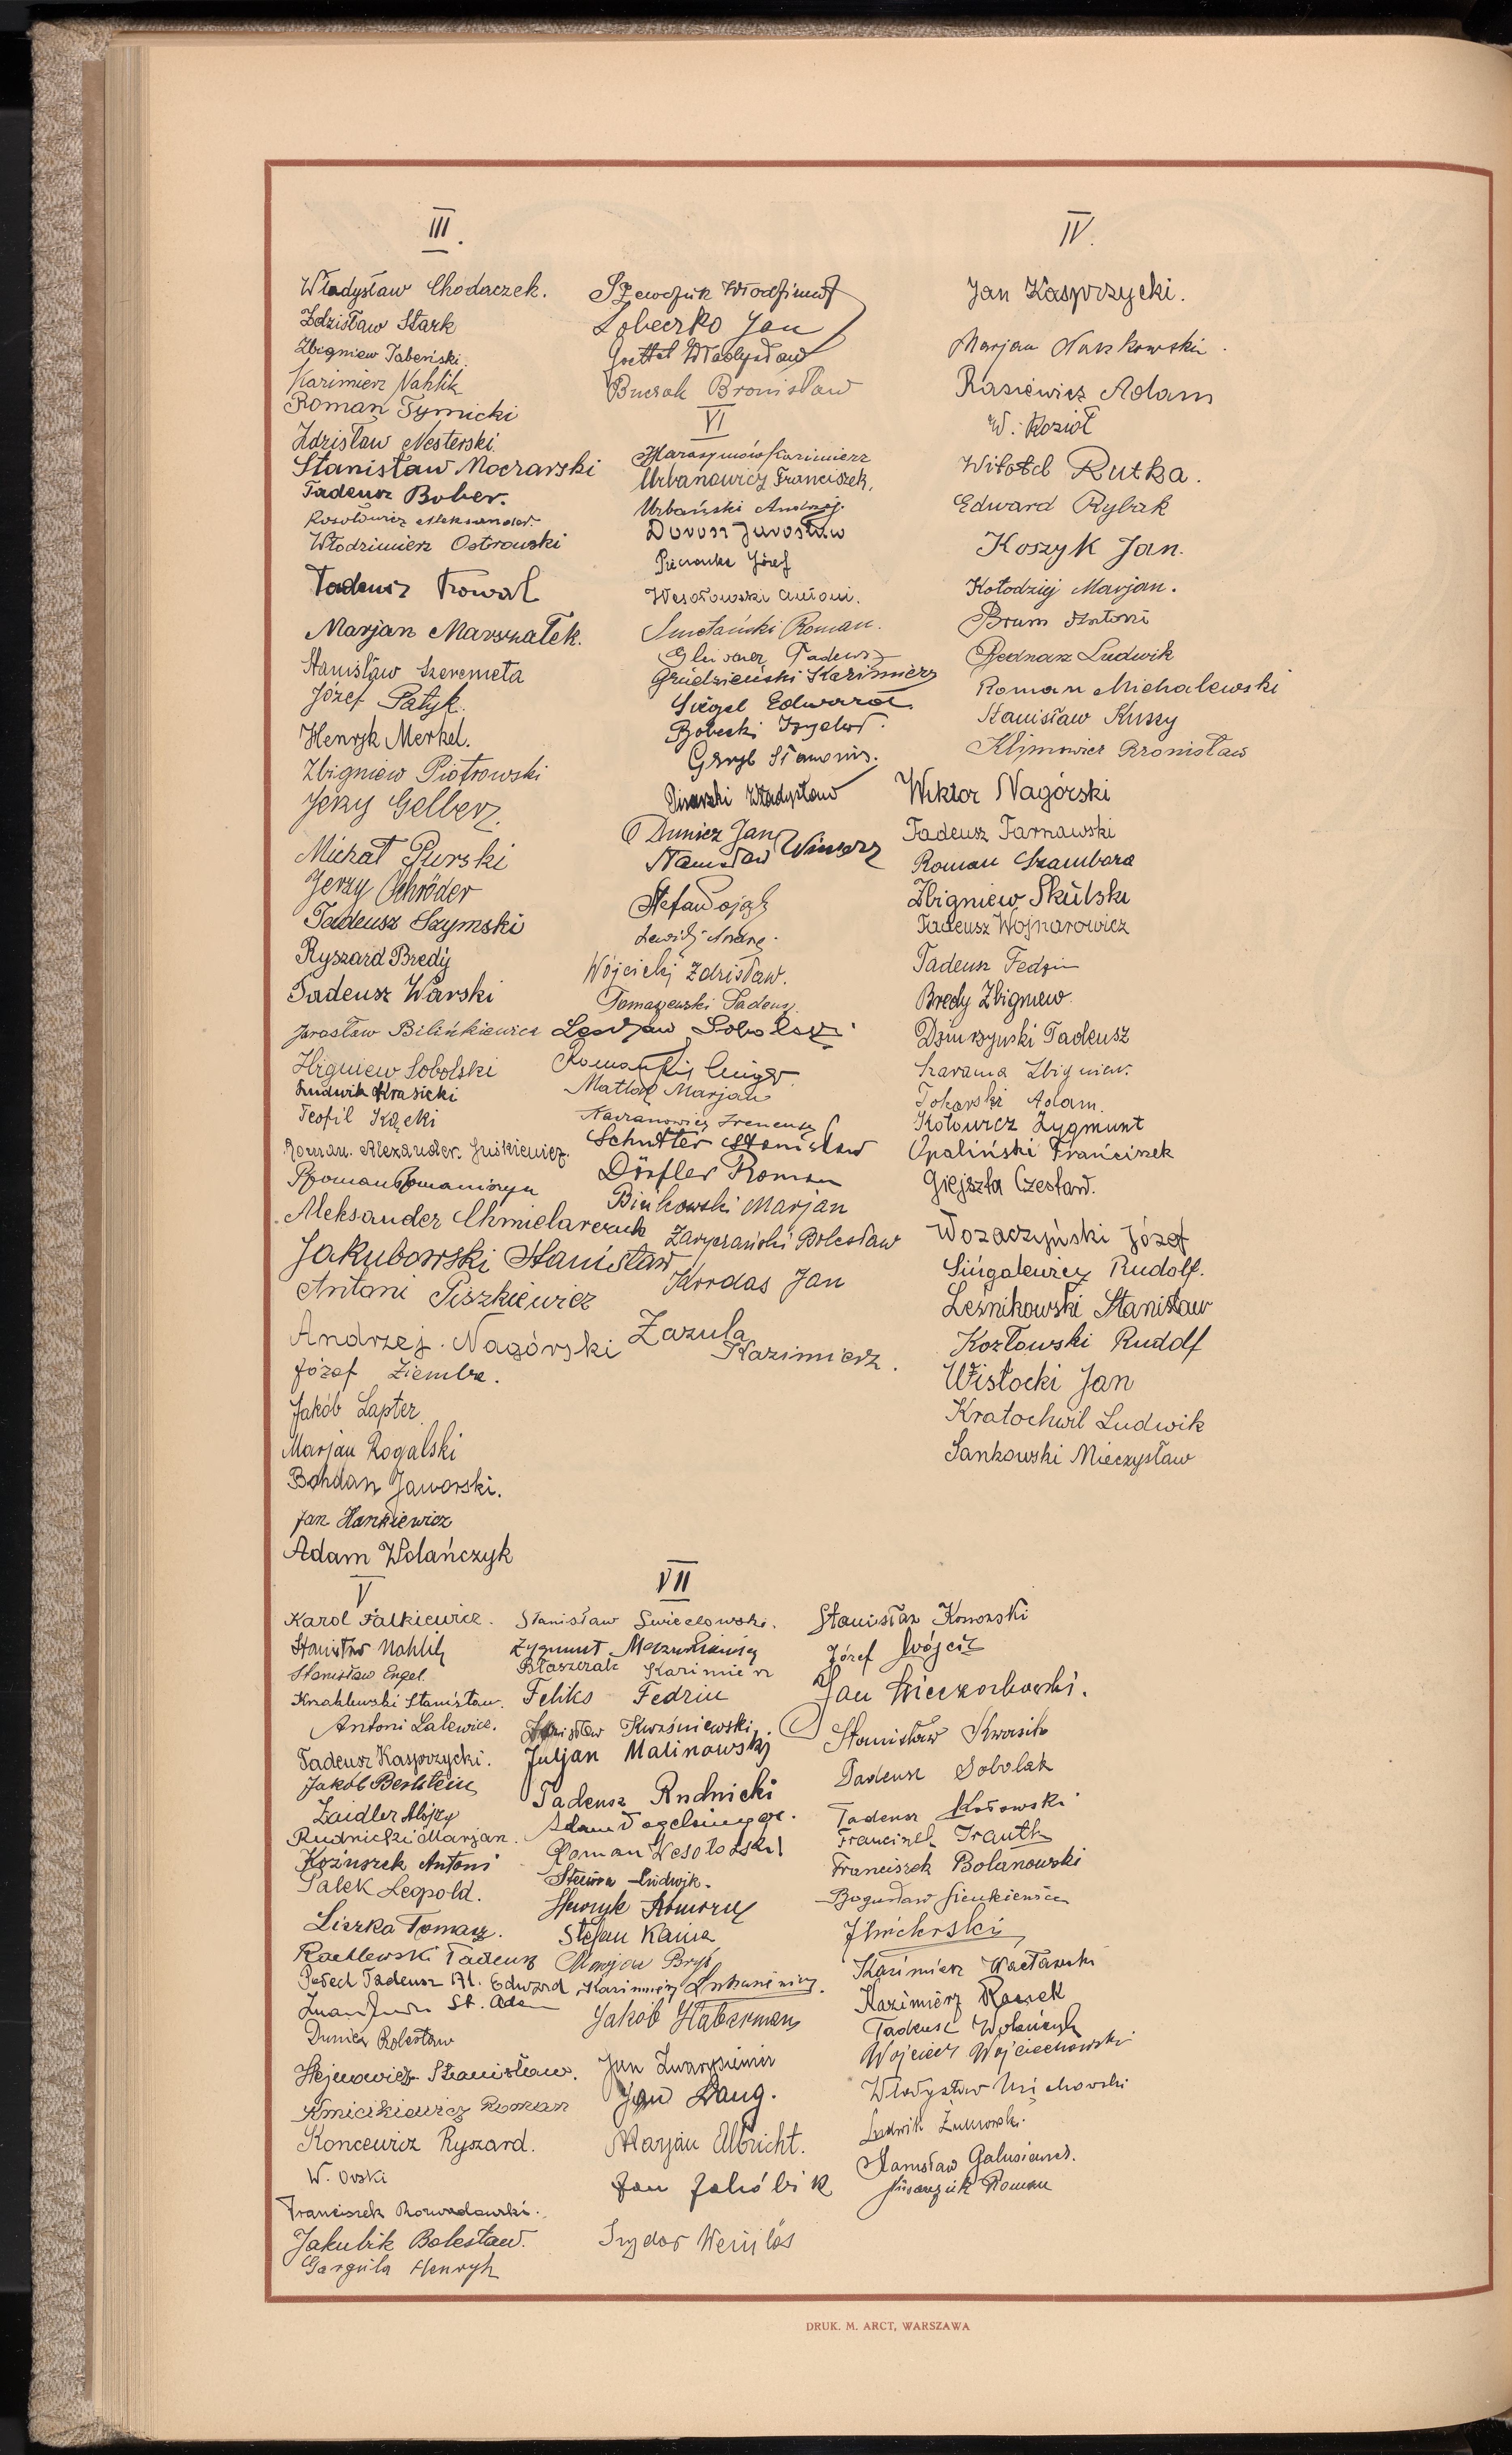 III.
Władysław Chodaczek.
Zdzisław Stark
Zbigniew Tabeński
Kazimierz Nahlik
Roman Tymicki
Zdzisław Nesterski
Stanisław Moczarski
Tadeusz Bober.
Rosołowicz Aleksander
Włodzimierz Ostrowski
Tadeusz Kowal
Marjan Marszałek.
Stanisław Szeremeta
Józef Patyk.
Henryk Merkel.
Zbigniew Piotrowski
Jerzy Gelberz
Michał Purski
Jerzy Schröder
Tadeusz Szymski
Ryszard Bredy
Tadeusz Warski
Jarosław Bilińkiewicz
Zbigniew Sobolski
Ludwik Krasicki
Teofil Kącki
Roman. Alexander. Juśkiewicz.
Roman Romaniszyn
Aleksander Chmielarczuk
Jakubowski Stanisław
Antoni Piszkiewicz
Andrzej Nagórski
Józef Ziemba.
Jakób Lapter
Marjan Rogalski
Bohdan Jaworski.
Jan Hankiewicz
Adam Wolańczyk
Szewczuk Włodzimierz
Sobeczko Jan
Goettel Władysław
Buczak Bronisław
VI
Harasymów Kazimierz
Urbanowicz Franciszek,
Urbański Andrzej.
Dorosz Jarosław
Pieczonka Józef
Wesołowski Antoni.
Smetański Roman.
Tadeusz
Grudzieński Kazimierz
Siegel Edward
Bobecki Izydor.
Gryb Stanis.
Pisarski Władysław
Dunicz Jan
Stanisław Winiarz
Stefan
Lewicki Andrzej.
Wójcicki Zdzisław.
Tomaszewski Tadeusz
Lesław Sobolski
Roman
Matlak Marjan
Kaczanowicz Ireneusz
Schutter Stanisław
Dörfler Roman
Bińkowski Marjan
Zaryczański Bolesław
Kordas Jan
Zazula
Kazimierz.
IV.
Jan Kasprzycki.
Marjan Naszkowski.
Rasiewicz Adam
W. Kozioł
Witold Rutka.
Edward Rybak
Koszyk Jan.
Kołodziej Marjan.
Brum Antoni
Bednarz Ludwik
Roman Michalewski
Stanisław Kuszy
Klimowicz Bronisław
Wiktor Nagórski
Tadeusz Tarnawski
Roman Szambora
Zbigniew Skulski
Tadeusz Wojnarowicz
Tadeusz Fedzin
Bredy Zbigniew.
Dżurzyński Tadeusz
Szarama Zbigniew.
Tokarski Adam.
Kotowicz Zygmunt
Opaliński Franciszek
Giejszta Czesław.
Wozaczyński Józef
Singalewicz Rudolf.
Leśnikowski Stanisław
Kozłowski Rudolf
Wisłocki Jan
Kratochwil Ludwik
Sankowski Mieczysław
V
Karol Falkiewicz.
Stanisław Nahlik
Stanisław Engel.
Krzaklewski Stanisław.
Antoni Lalewicz.
Tadeusz Kasprzycki.
Jakób Berlstein
Zaidler Alojzy
Rudnicki Marjan.
Kożuszek Antoni
Palek Leopold.
Liszka Tomasz.
Rachlewski Tadeusz
Potech Tadeusz Al. Edward
St. Adam
Dunicz Bolesław
Hejnowicz Stanisław.
Kmicikiewicz Roman
Koncewicz Ryszard.
W. Orski
Franciszek Rozwadowski.
Jakubik Bolesław.
Gargula Henryk
VII
Stanisław Świecłowski.
Zygmunt
Błaszczak Kazimierz
Feliks Fedziu
Zdzisław Kwaśniewski
Juljan Malinowski
Tadeusz Rudnicki
Adam Vogelsinger.
Roman Wesołowski
Ludwik.
Henryk Komorzy
Stefan Kania
Marjan Bryś
Kazimierz Łukasiewicz.
Jakób Haberman
Jan
Jan Lang.
Marjan Olbricht.
Jan Jakóbik
Izydor Wenylos
Stanisław Konorski
Józef Wójcik
Jan Wieczorkowski.
Stanisław Kwasik
Tadeusz Sobolak
Tadeusz Kosowski
Franciszek Trauth
Franciszek Bolanowski
Bogusław Sienkiewicz
Kazimierz Wacławski
Kazimierz Rossek
Tadeusz Wolańczyk
Wojciech Wojciechowski
Władysław
Ludwik Żukrowski.
Stanisław Galusianek.
Roman
DRUK. M. ARCT, WARSZAWA